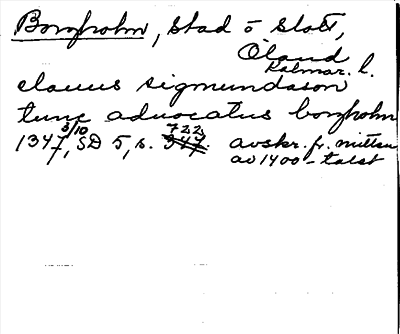 Borgholm, Stad o Slott,
Öland
Kalmar. l.
elauus sigmundason
tunc aduocatus borgholm
1347 3/10, SD 5, s. 347. 722. avskr. fr. mitten
av 1400-talet